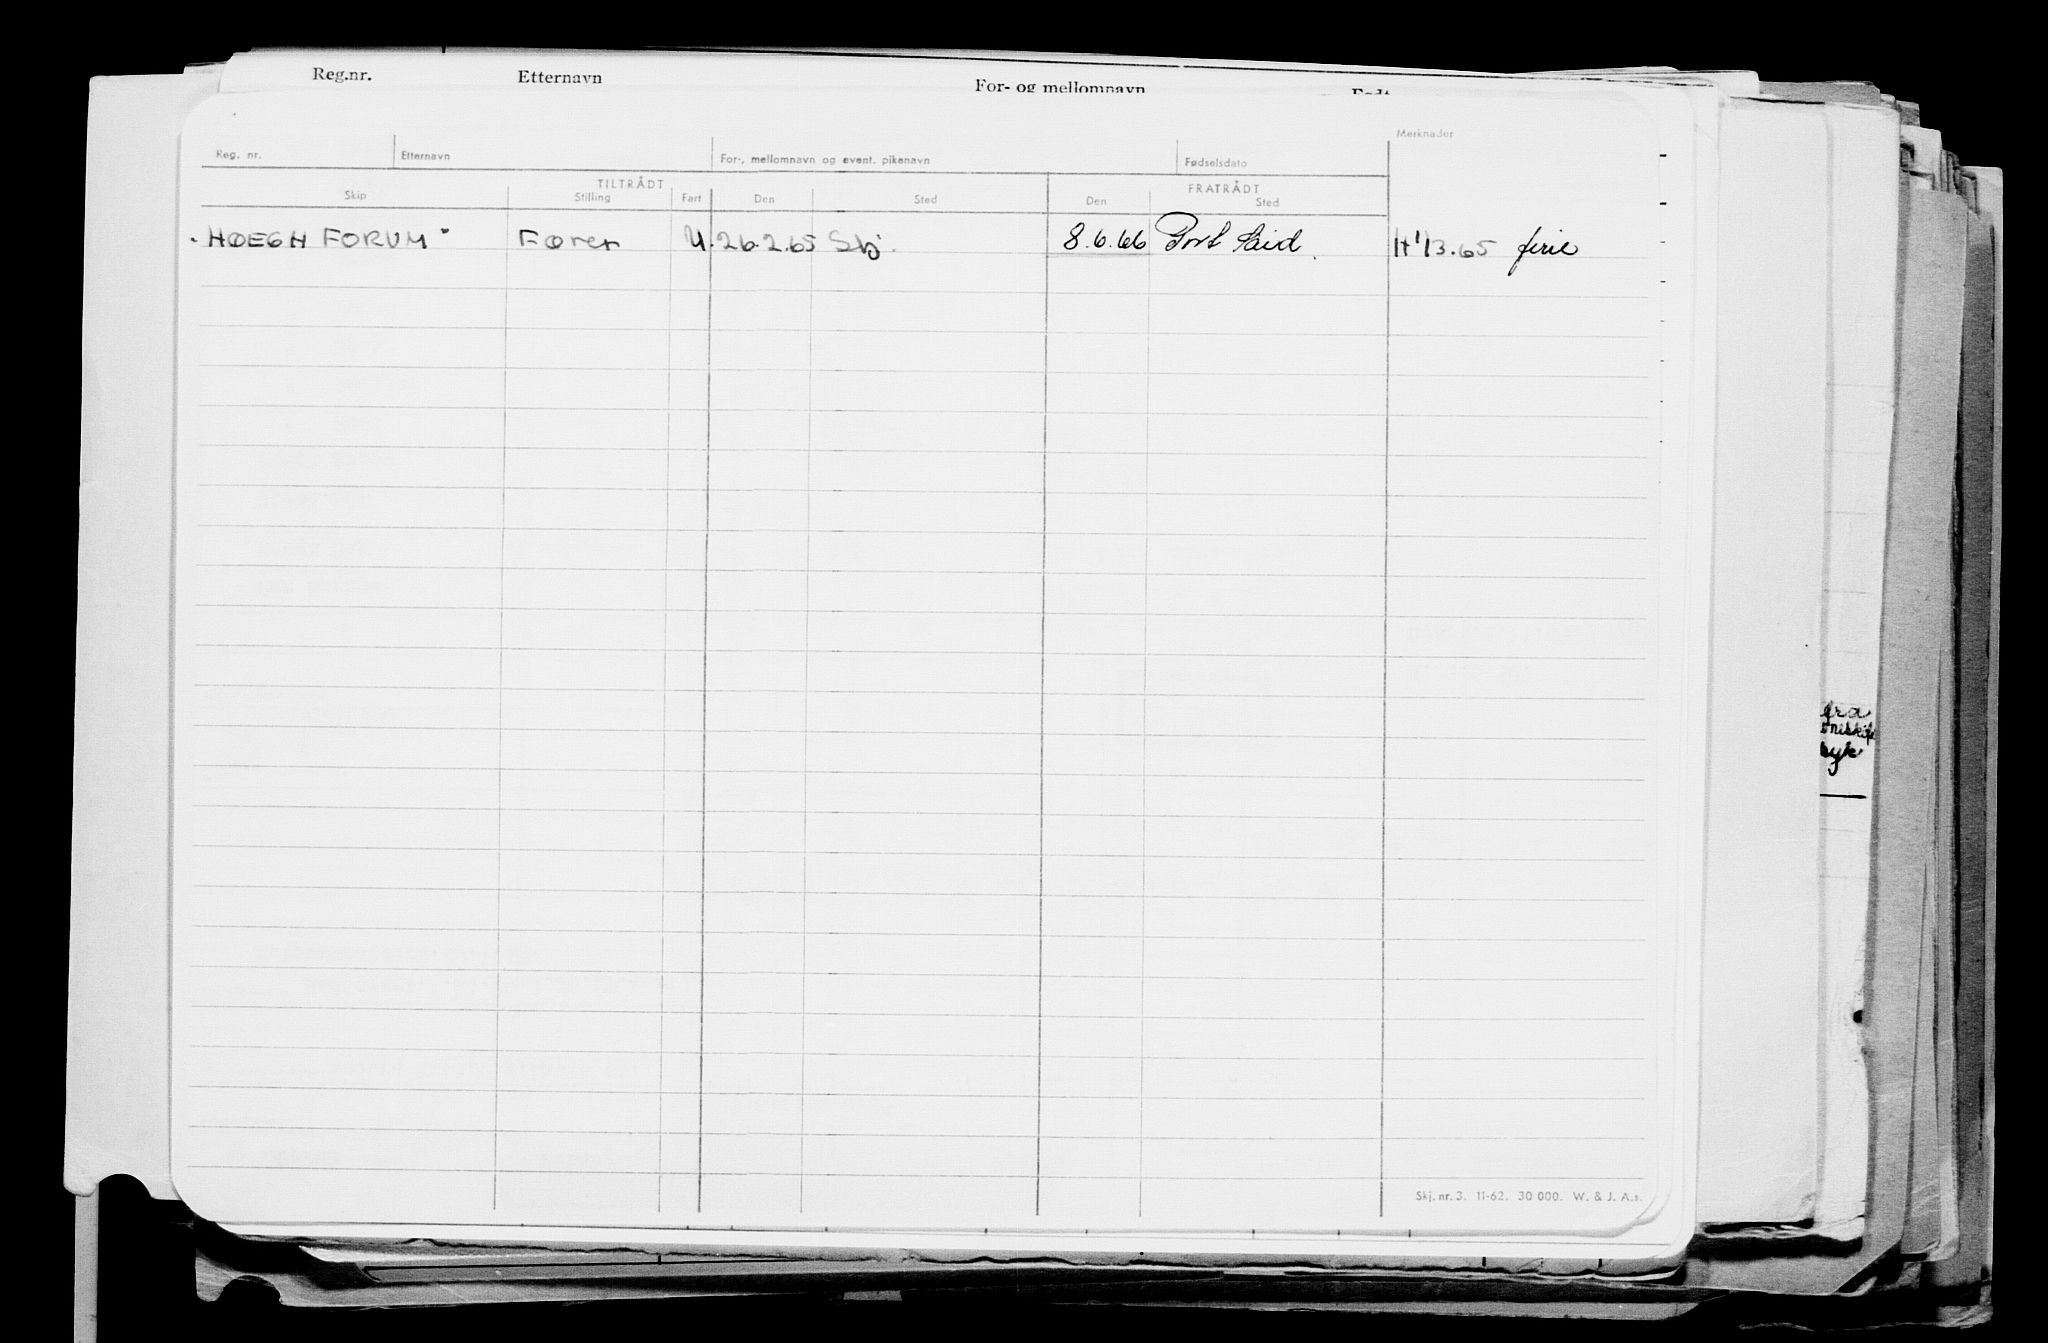 Reg.nr. Etternavn For- og mellomnavn Født
Merknader
Reg. nr. Etternavn For-, mellomnavn og event. pikenavn Fødselsdato
TILTRÅDT FRATRÅDT
Skip Stilling Fart Den Sted Den Sted
"HØEGH FORUM" Fører U. 26.2.65 Sbj. 8.6.66 Port Said. 3.65 ferie
fra
byk
Skj. nr. 3. 11-62. 30 000. W. & J. A.s.